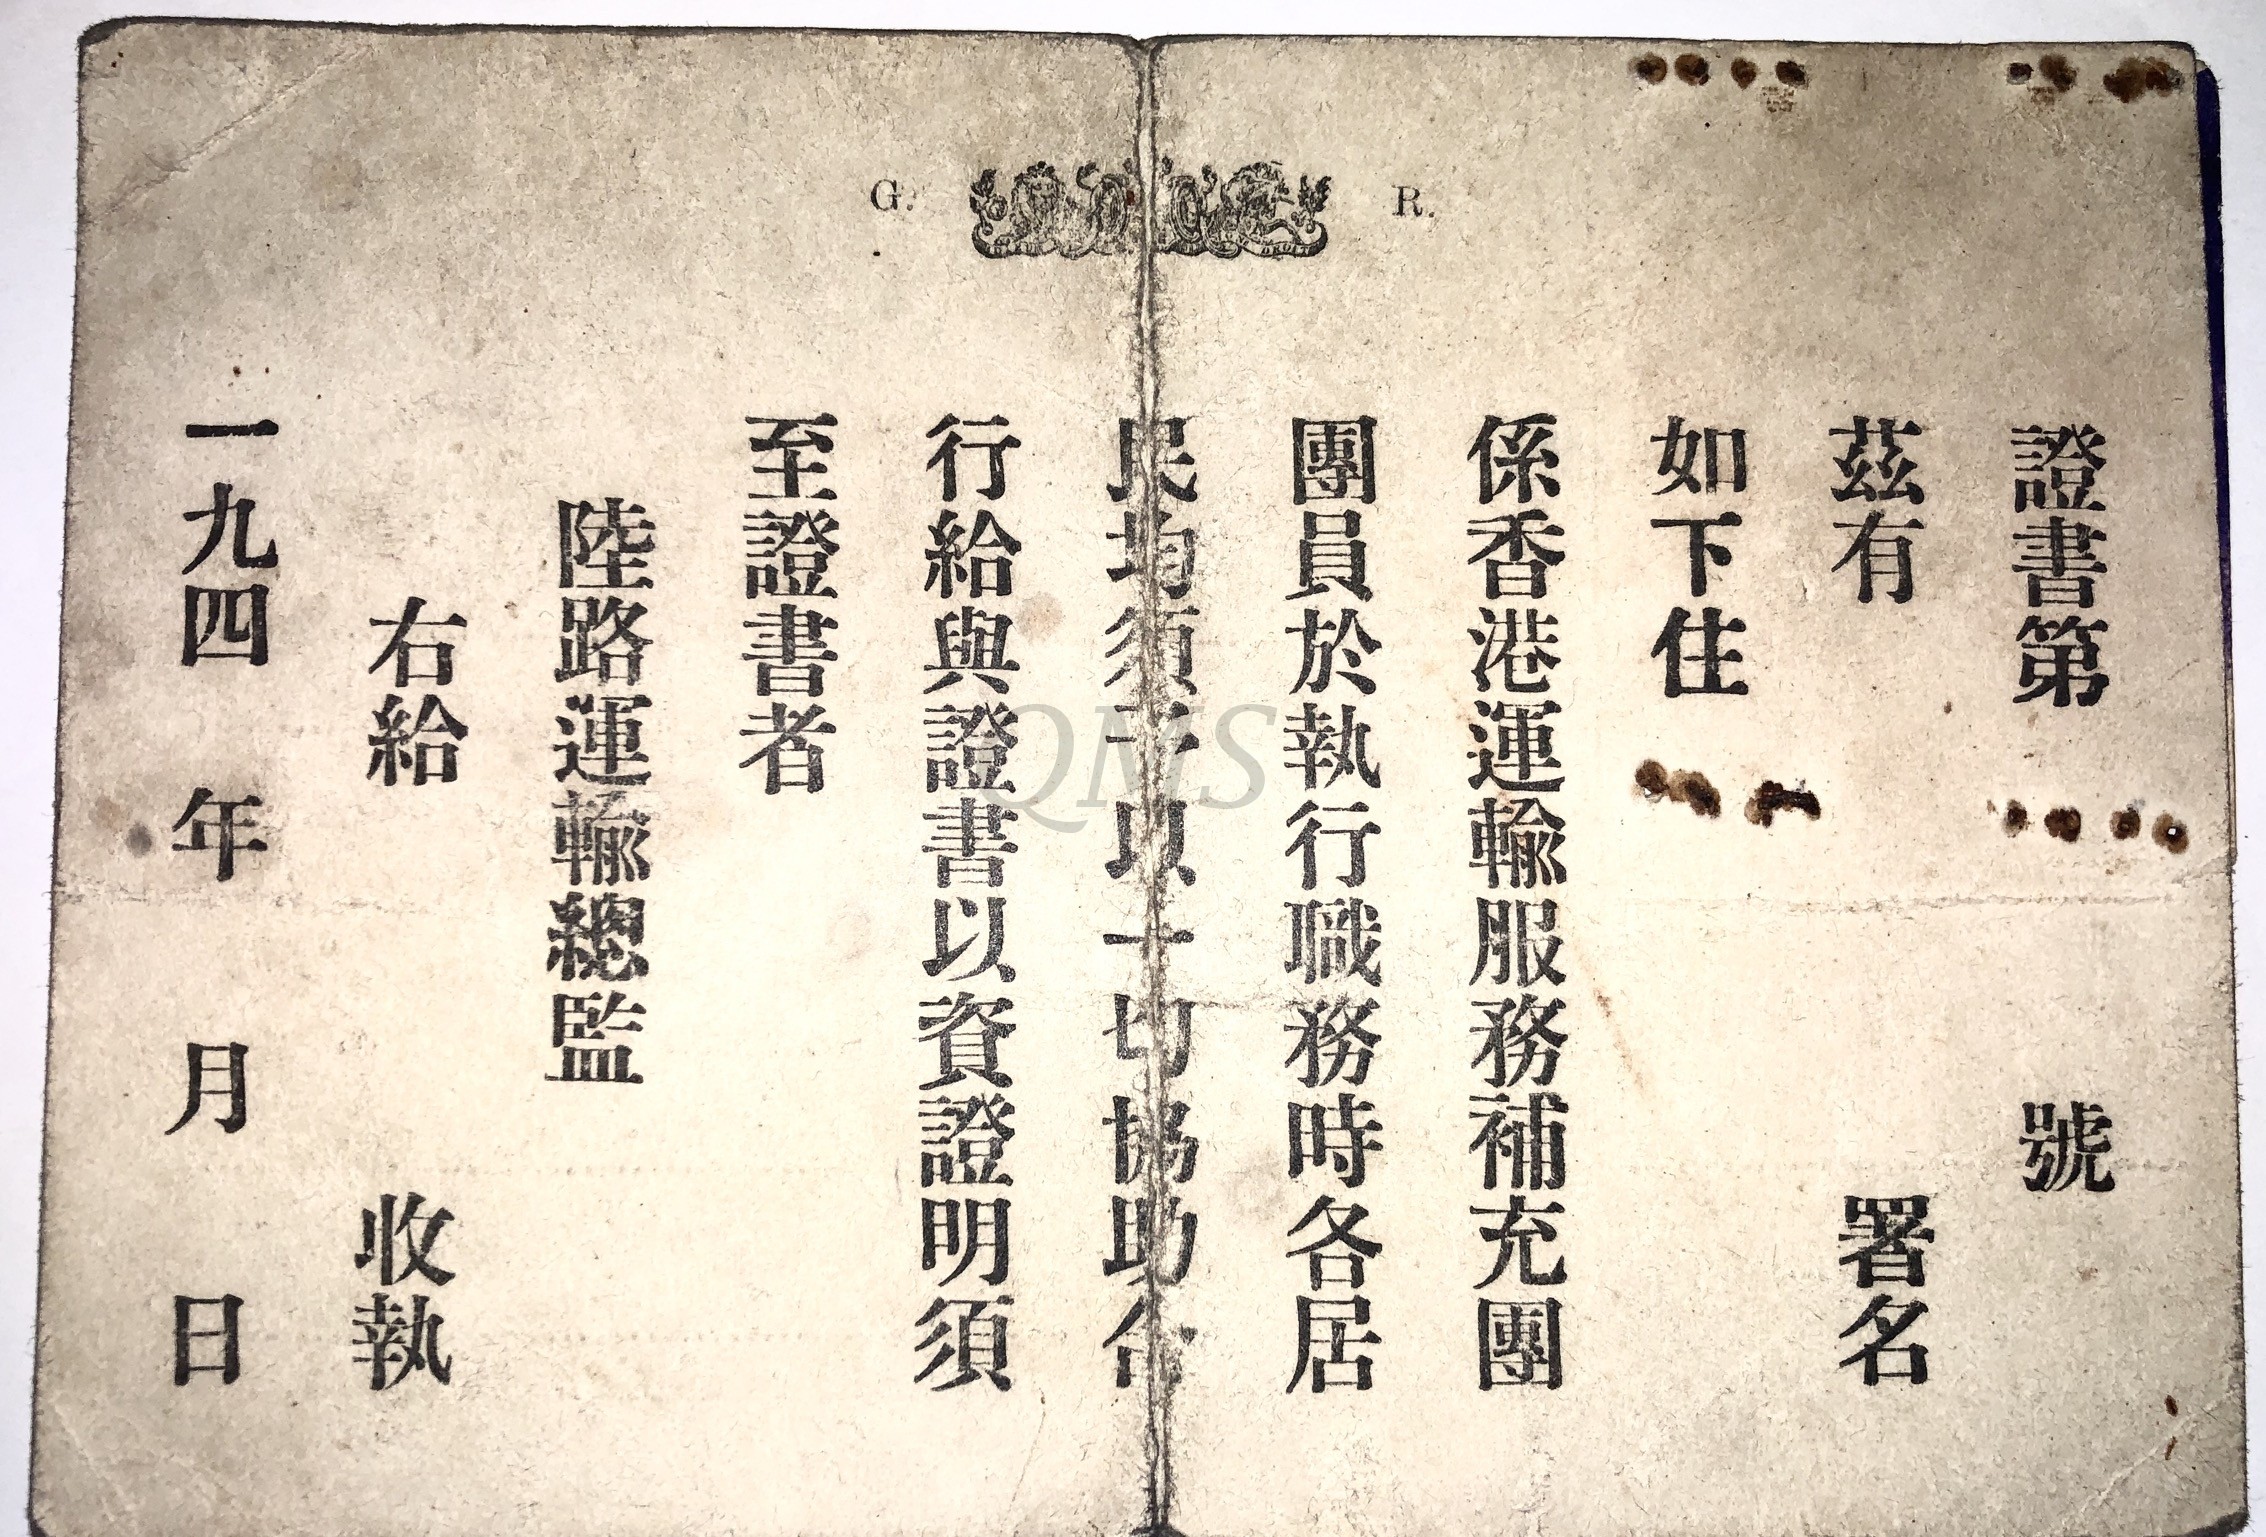 G. R.
證書第 號
茲有 署名
如下住
係香港運輸服務補充團
團員於執行職務時各居
民均須予以一切協助合
行給與證書以資證明須
至證書者
陸路運輸總監
右給 收執
一九四 年 月 日
QMS